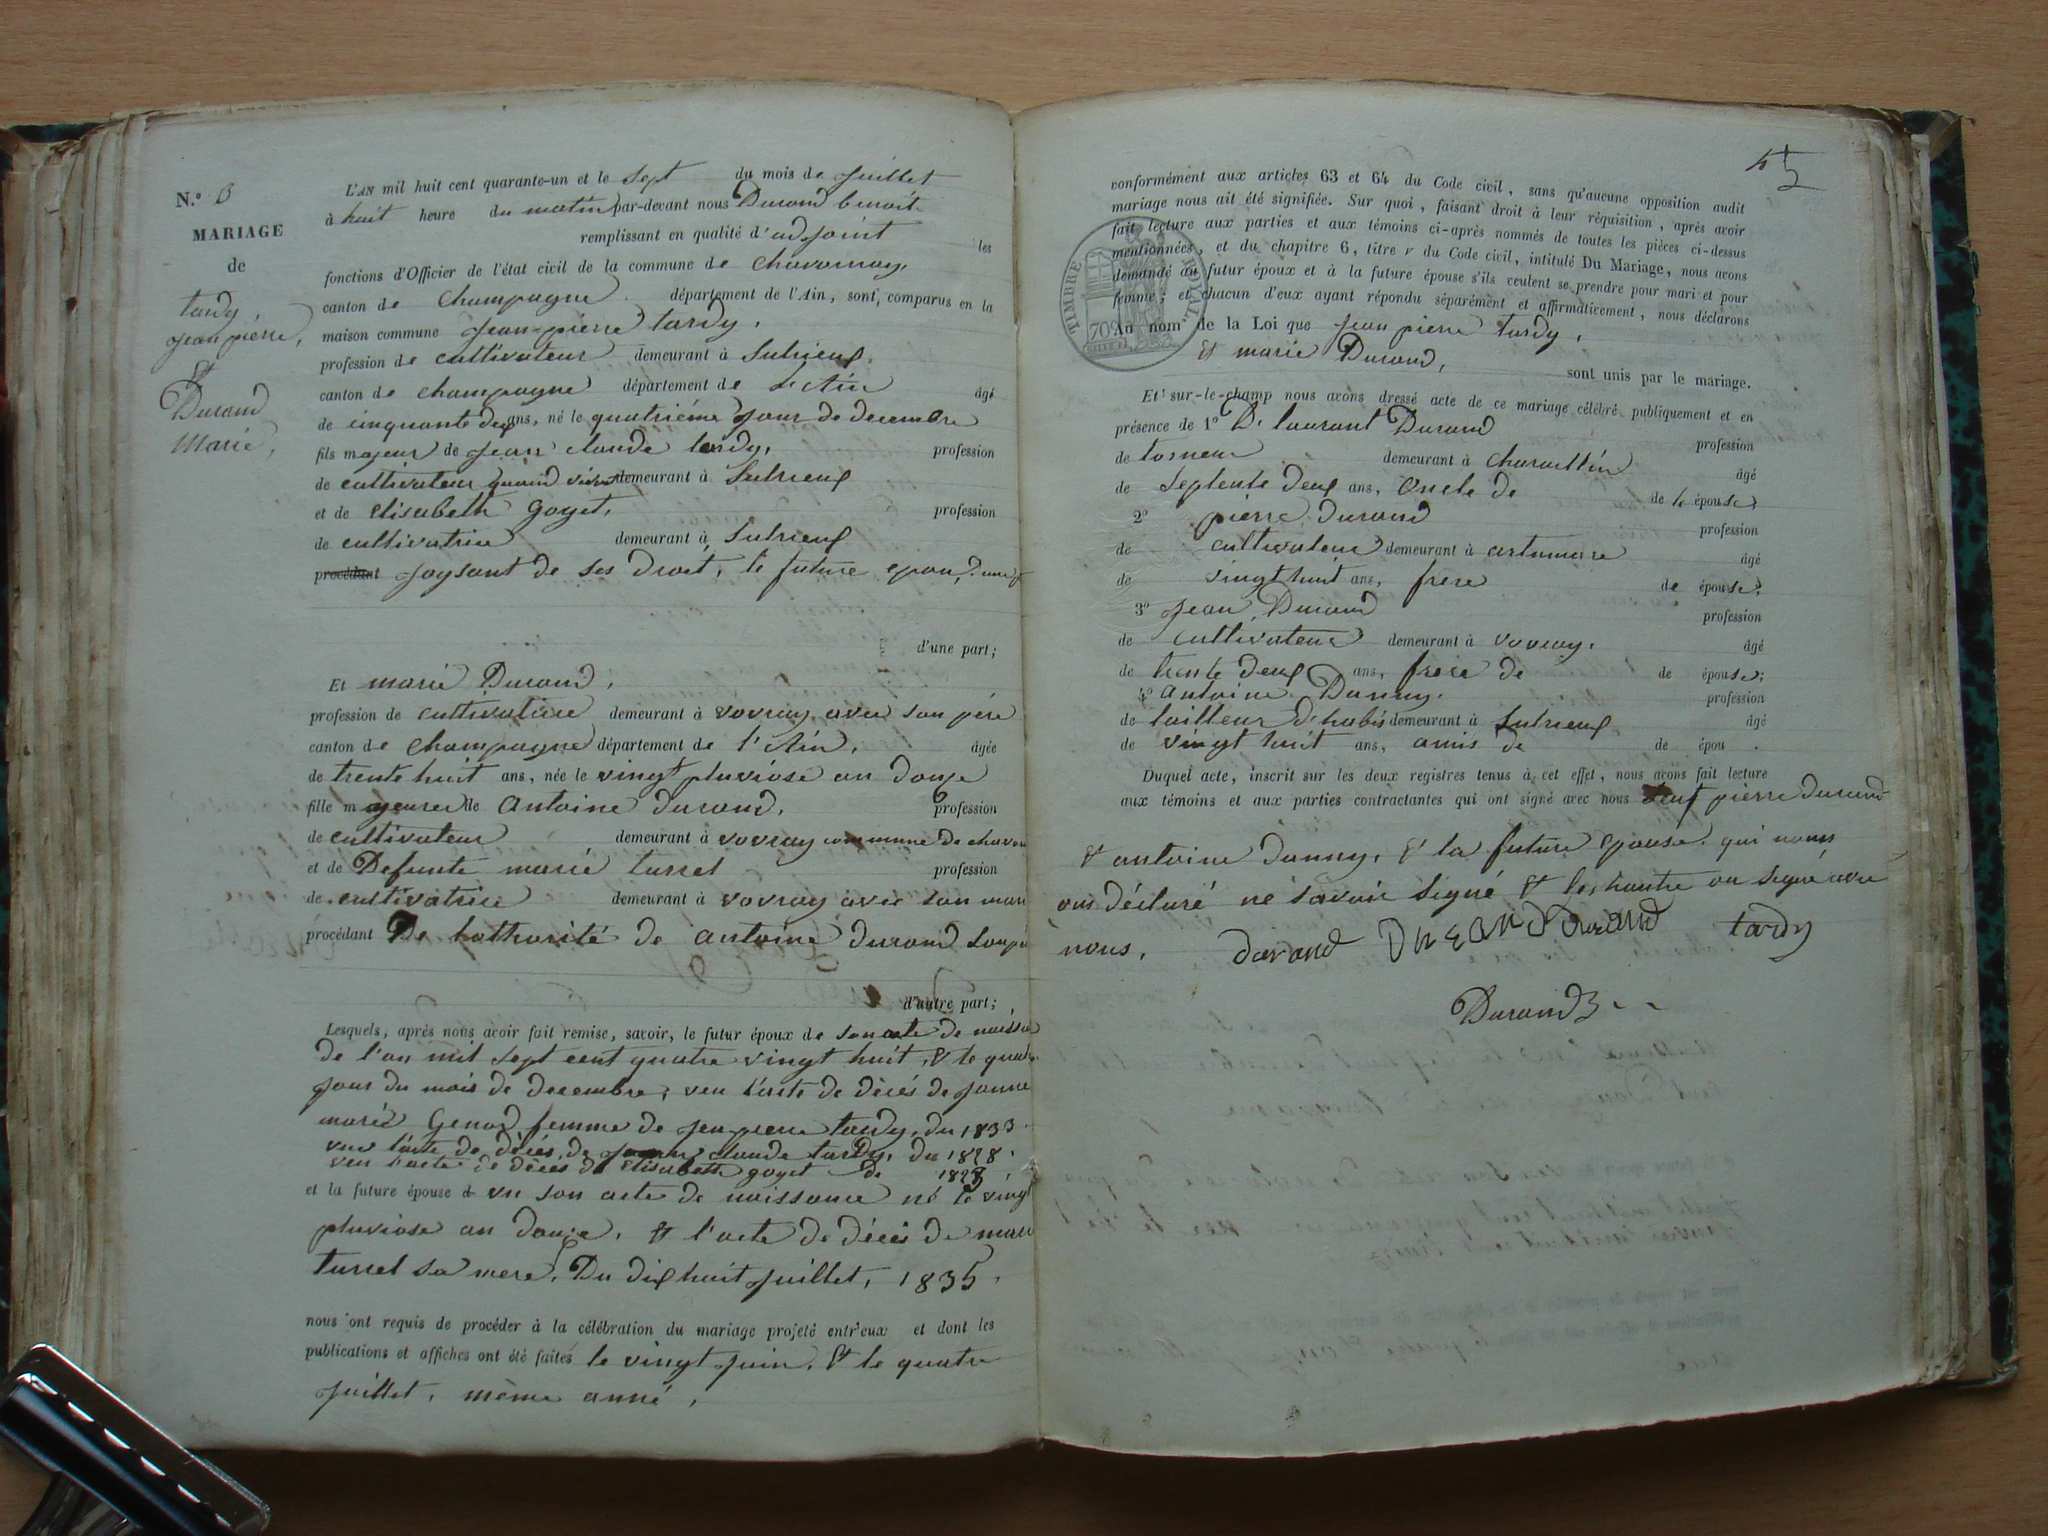 N.º 6
MARIAGE
de
tardy
jean pierre,
Et
Durand
Marie,
L'AN mil huit cent quarante-un et le sept du mois de juillet
à huit heure du matin par-devant nous Durand benoit
remplissant en qualité d'adjoint les
fonctions d'Officier de l'état civil de la commune de chavornay,
canton de champagne département de l'Ain, sont comparus en la
maison commune jean-pierre tardy,
profession de cultivateur demeurant à Sutrieux,
canton de champagne département de L'Ain âgé
de cinquante deux ans, né le quatriéme jour de decembre
fils majeur de jean claude tardy, profession
de cultivateur quand vivant demeurant à Sutrieux
et de elisabeth goyet, profession
de cultivatrice demeurant à Sutrieux
procédant joysant de ses droit, le future epoux, d'une p
d'une part;
Et marie Durand,
profession de cultivatrice demeurant à vovray avec son pére
canton de champagne département de l'Ain, âgée
de trente huit ans, née le vingt pluviose an douze
fille majeure de Antoine durand, profession
de cultivateur demeurant à vovray commune de chavor
et de Defunte marie turrel profession
de cultivatrice demeurant à vovray avec son mari
procédant De l'othorité de antoine durand sonpé
d'autre part;
Lesquels, après nous avoir fait remise, savoir, le futur époux de son acte de naissa
de l'an mil sept cent quatre vingt huit, & le quatr
jour du mois de decembre, veu l'acte de décés de janne
marie Genod femme de jeanpierre tardy, du 1833
veu l'acte de décés, de jean claude tardy, du 1828,
veu l'acte de décés de Elisabeth goyet de 1828,
et la future épouse de vu son acte de naissance né le vingt
pluviose an douze, & l'acte de décés de marie
turrel sa mere, Du dix huit juillet, 1835,
nous ont requis de procéder à la célébration du mariage projeté entr'eux et dont les
publications et affiches ont été faites le vingt juin, & le quatre
juillet, même anné,
conformément aux articles 63 et 64 du Code civil, sans qu'aucune opposition audit
mariage nous ait été signifiée. Sur quoi, faisant droit à leur réquisition, après avoir
fait lecture aux parties et aux témoins ci-après nommés de toutes les pièces ci-dessus
mentionnées, et du chapitre 6, titre v du Code civil, intitulé Du Mariage, nous avons
demandé au futur époux et à la future épouse s'ils veulent se prendre pour mari et pour
femme; et chacun d'eux ayant répondu séparément et affirmativement, nous déclarons
Au nom de la Loi que jean pierre tardy,
Et marie Durand,
sont unis par le mariage.
TIMBRE ROYAL.
70c
Et sur-le-champ nous avons dressé acte de ce mariage célébré publiquement et en
présence de 1º D. laurant Durand profession
de torneur demeurant à charaillin âgé
de septente deux ans, Oncle de de le épouse;
2º pierre durand profession
de cultivateur demeurant à artemare âgé
de vingt huit ans, frere de épouse;
3º jean Durand profession
de cultivateur demeurant à vovray, âgé
de trente deux ans, frere de de épouse;
4º antoine Danny, profession
de tailleur d'habis demeurant à Sutrieux âgé
de vingt huit ans, amis de de épou .
Duquel acte, inscrit sur les deux registres tenus à cet effet, nous avons fait lecture
aux témoins et aux parties contractantes qui ont signé avec nous seuf pierre durand
& antoine danny, & la future epouse, qui nous
on décluré ne savoir signé & les hautre on signé avec
nous, durand DURAND durand tardy
Durand